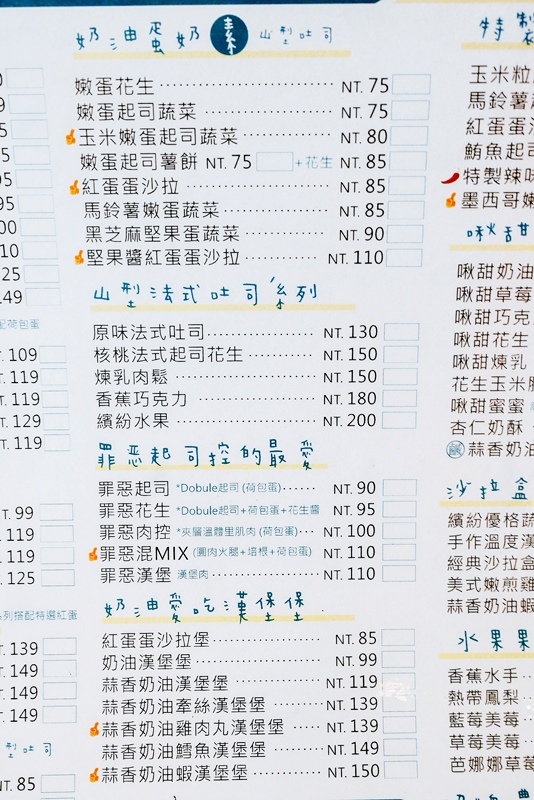 奶油蛋奶 素 山型吐司
嫩蛋花生 NT. 75
嫩蛋起司蔬菜 NT. 75
玉米嫩蛋起司蔬菜 NT. 80
嫩蛋起司薯餅 NT. 75 +花生 NT. 85
紅蛋蛋沙拉 NT. 85
馬鈴薯嫩蛋蔬菜 NT. 85
黑芝麻堅果蛋蔬菜 NT. 90
堅果醬紅蛋蛋沙拉 NT. 110
山型法式吐司系列
原味法式吐司 NT. 130
核桃法式起司花生 NT. 150
煉乳肉鬆 NT. 150
香蕉巧克力 NT. 180
繽紛水果 NT. 200
罪惡起司控的最愛
罪惡起司 *Dobule起司 (荷包蛋) NT. 90
罪惡花生 *Dobule起司+荷包蛋+花生醬 NT. 95
罪惡肉控 *夾層溫體里肌肉 (荷包蛋) NT. 100
罪惡混MIX (圓肉火腿+培根+荷包蛋) NT. 110
罪惡漢堡 漢堡肉 NT. 110
奶油愛吃漢堡堡
紅蛋蛋沙拉堡 NT. 85
奶油漢堡堡 NT. 99
蒜香奶油漢堡堡 NT. 119
蒜香奶油牽絲漢堡堡 NT. 139
蒜香奶油雞肉丸漢堡堡 NT. 139
蒜香奶油鱈魚漢堡堡 NT. 149
蒜香奶油蝦漢堡堡 NT. 150
10
125
149
配荷包蛋
. 109
119
119
129
119
. 99
119
119
. 125
系列搭配特選紅蛋
139
149
149
149
型吐司
NT. 85
特製
玉米粒
馬鈴薯
紅蛋蛋
鮪魚起司
特製辣味
墨西哥嫩
啾甜
啾甜奶油
啾甜草莓
啾甜巧克
啾甜花生
啾甜煉乳
花生玉米
啾甜蜜蜜
杏仁奶酥
鹹 蒜香奶油
沙拉盒
繽紛優格蔬
手作溫度漢
經典沙拉盒
美式嫩煎雞
蒜香奶油蝦
水果果
香蕉水手
熱帶鳳梨
藍莓美莓
草莓美莓
芭娜娜草莓